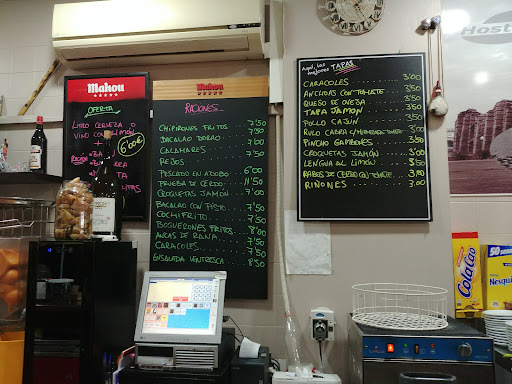 Mahou
OFERTA
LITRO CERVEZA O
VINO CON LIMÓN
6'00€
Mahou
RACIONES
CHIPIRONES FRITOS 7'50
BACALAO DORAO 7'50
CALAMARES 7'50
REJOS
PESCADO EN ADOBO 6'00
PRUEBA DE CERDO 11'50
CROQUETAS JAMÓN 7'00
BACALAO CON PISTO 7'50
COCHIFRITO 7'50
BOQUERONES FRITOS 8'00
ANCAS DE RANA 7'50
CARACOLES 7'50
ENSALADA VENTRESCA 8'50
Aquí, las
mejores TAPAS
CARACOLES 3'00
ANCHOAS CON TOMATE 3'50
QUESO DE OVEJA 3'50
TAPA JAMÓN 3'50
POLLO CAJÚN 3'50
RULO CABRA
PINCHO GAMBONES 3'50
CROQUETAS JAMÓN 3'00
LENGUA AL LIMÓN 3'50
RABOS DE CERDO CON TOMATE 3'50
RIÑONES 3'00
Host
ColaCao
50
Nesquik